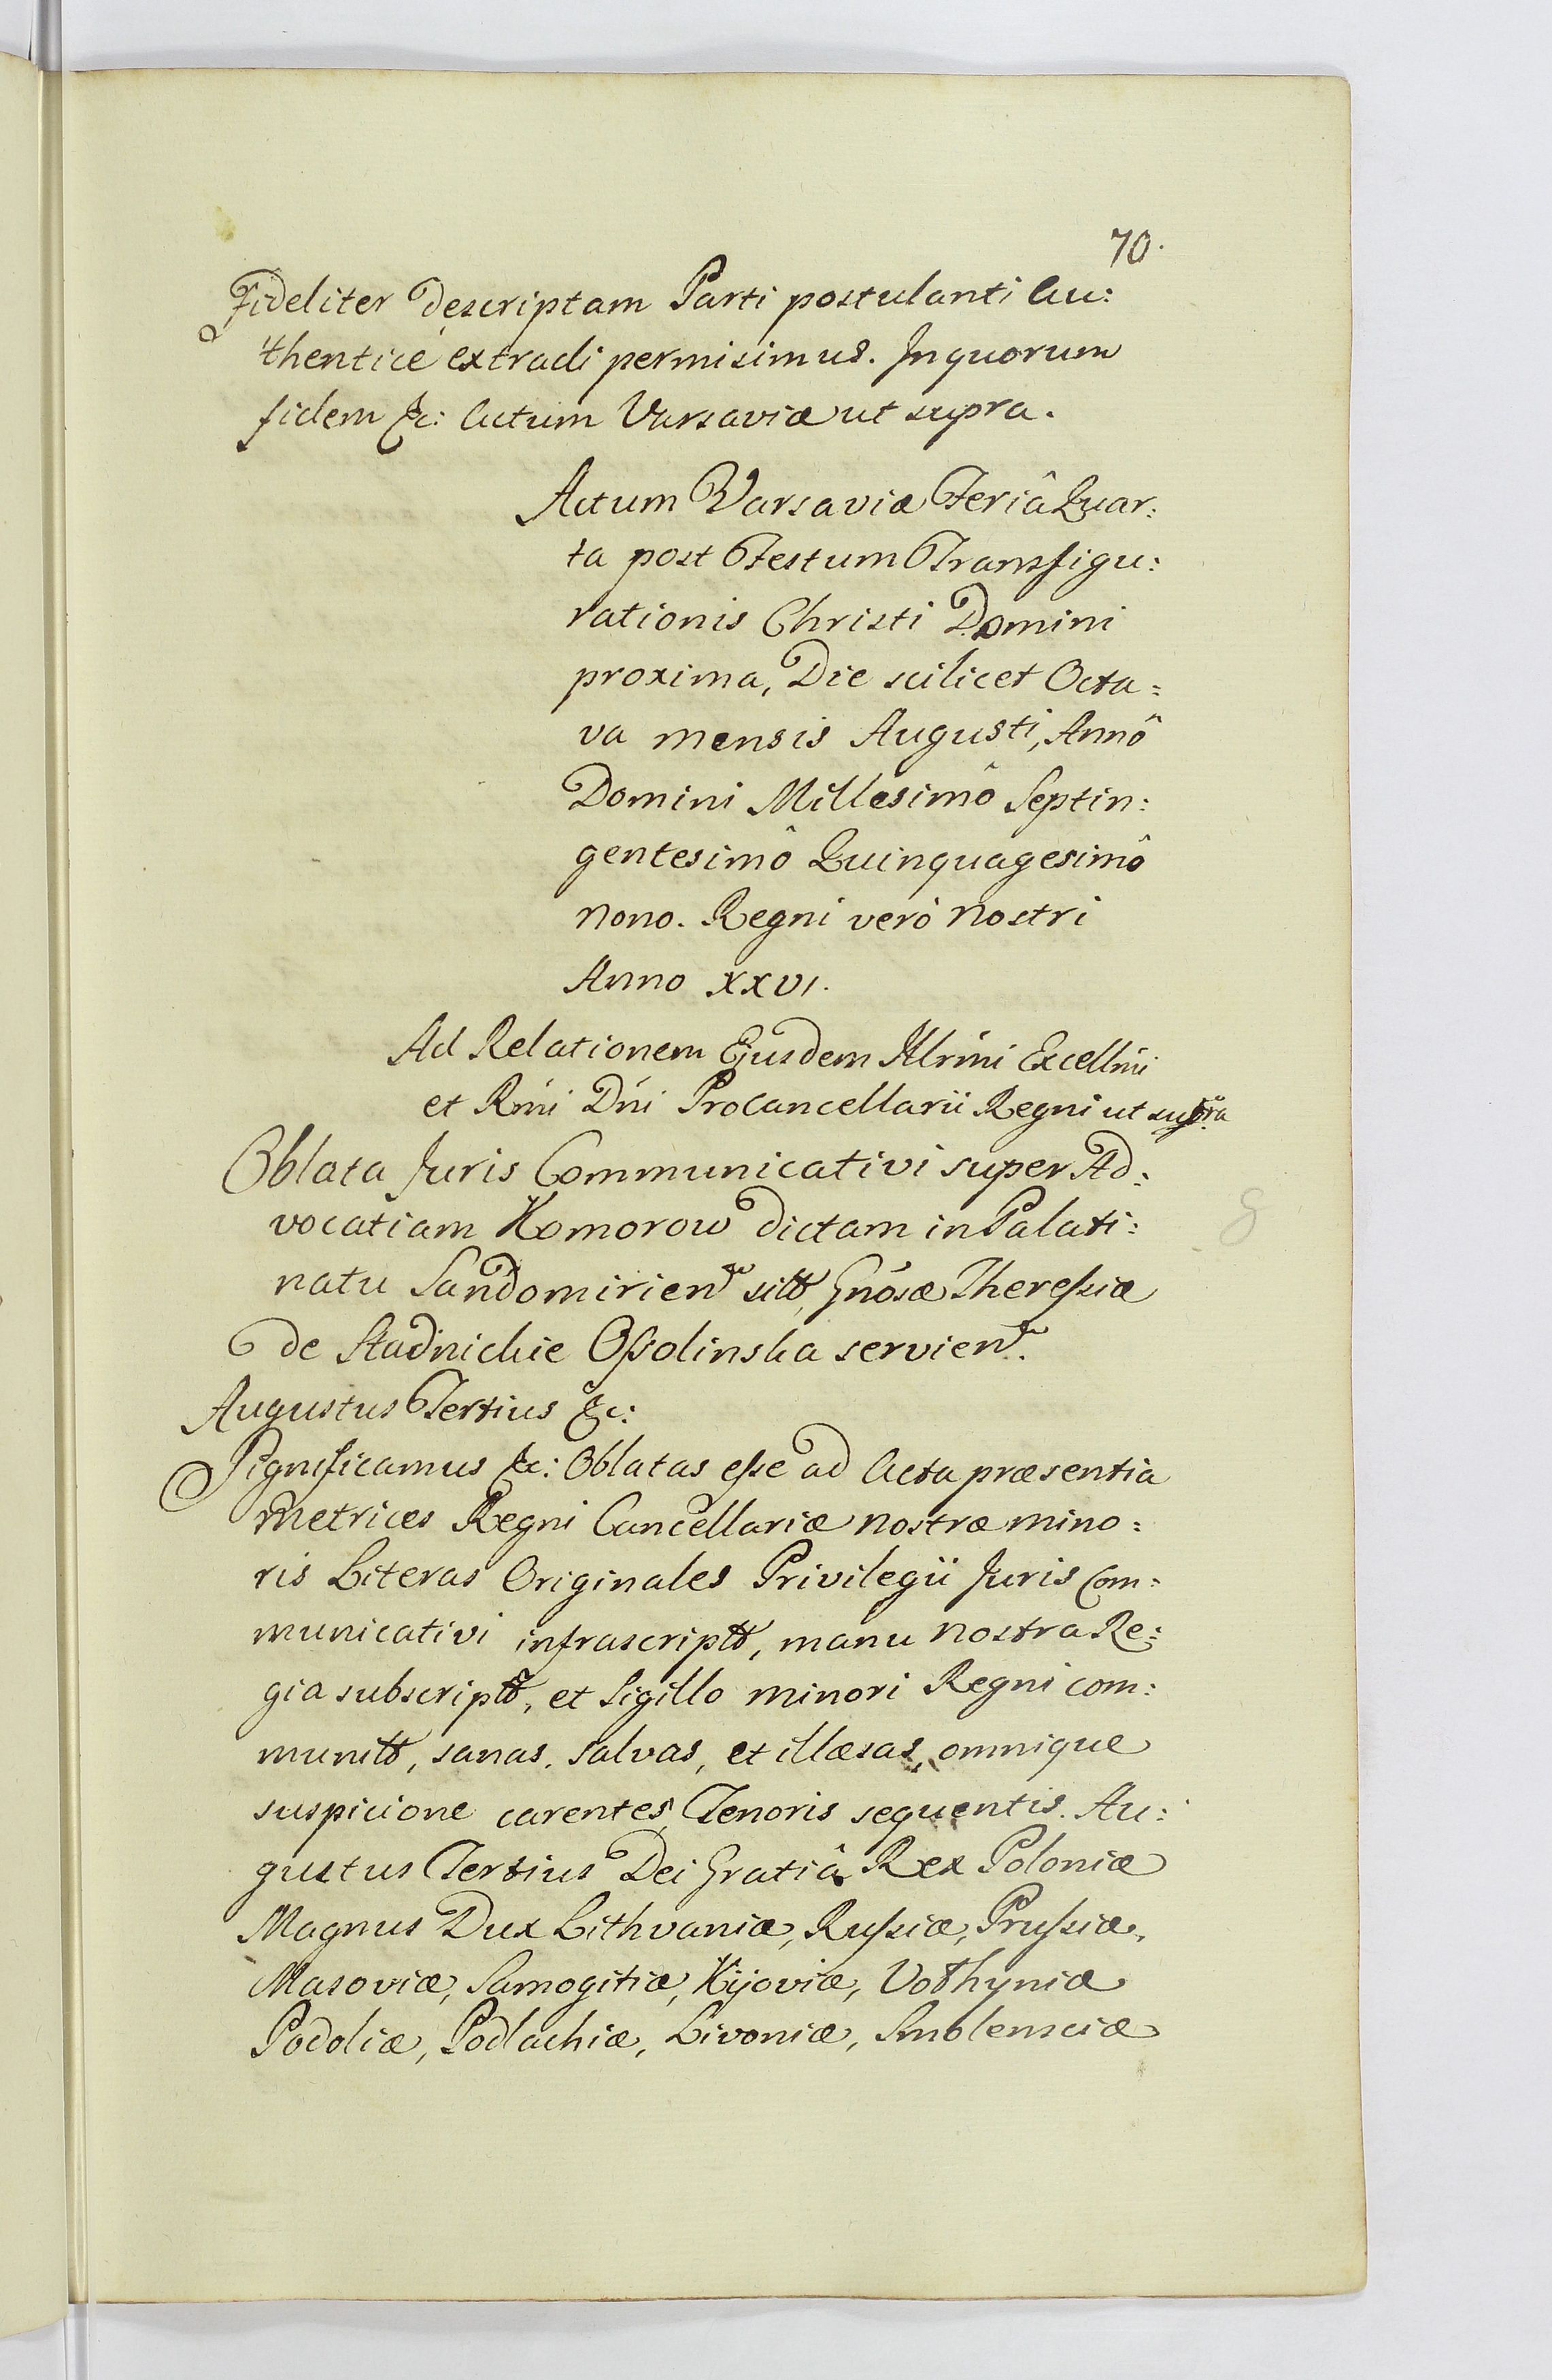 70.
Fideliter descriptam Parti postulanti Au:
thenticè extradi permisimus. In quorum
fidem &c: Actum Varsaviæ ut supra.
Actum Varsaviæ Feriâ Quar:
ta post Festum Transfigu:
rationis Christi Domini
proxima, Die scilicet Octa=
va mensis Augusti, Annô
Domini Millesimô Septin:
gentesimô Quinquagesimô
nono. Regni verò nostri
Anno XXVI.
Ad Relationem Ejusdem Illrmi Excellmi
et Rmi Dni Procancellarii Regni ut supra
Oblata Juris Communicativi super Ad:
vocatiam Komorow dictam in Palati:
natu Sandomirien sitt, Gnosæ Theressiæ
de Stadnickie Ossolinska servien.
Augustus Tertius &c:
Significamus &c: Oblatas esse ad Acta præsentia
Metrices Regni Cancellariæ nostræ mino=
ris Literas Originales Privilegii Juris Com=
municativi infrascriptt, manu nostra Re=
gia subscriptt, et Sigillo minori Regni com:
munitt, sanas, salvas, et illæsas, omnique
suspicione carentes, Tenoris sequentis. Au:
gustus Tertius Dei Gratiâ Rex Poloniæ
Magnus Dux Lithvaniæ, Russiæ, Prussiæ,
Masoviæ, Samogitiæ, Kijoviæ, Volhyniæ
Podoliæ, Podlachiæ, Livoniæ, Smolensciæ
8